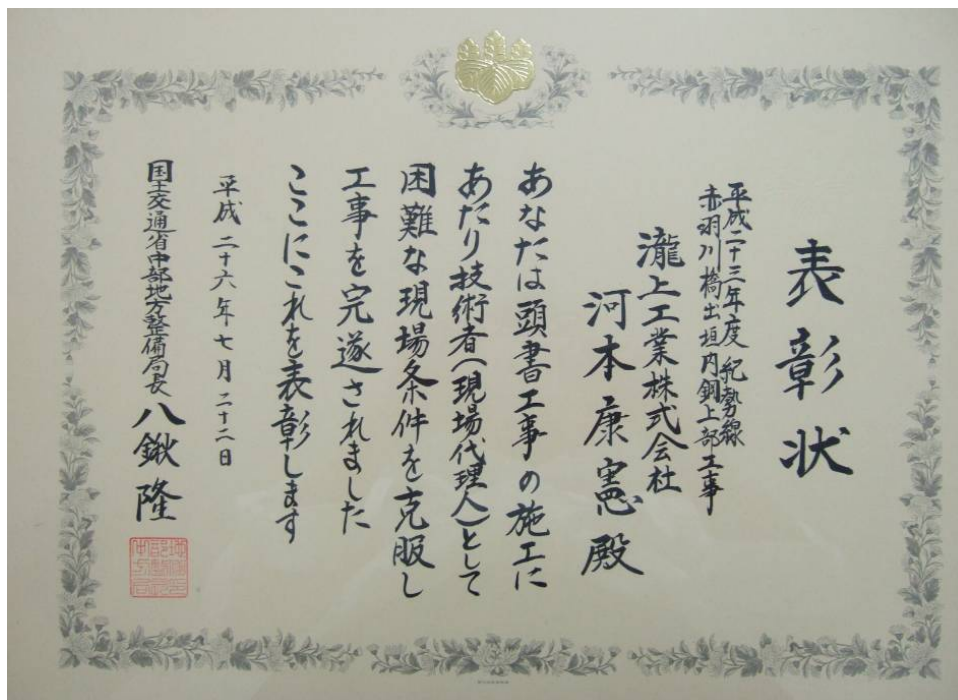 表彰状
平成二十三年度 紀勢線
赤羽川橋出垣内鋼上部工事
瀧上工業株式会社
河本康憲殿
あなたは頭書工事の施工に
あたり技術者(現場代理人)として
困難な現場条件を克服し
工事を完遂されました
ここにこれを表彰します
平成二十六年七月二十二日
国土交通省中部地方整備局長 八鍬隆